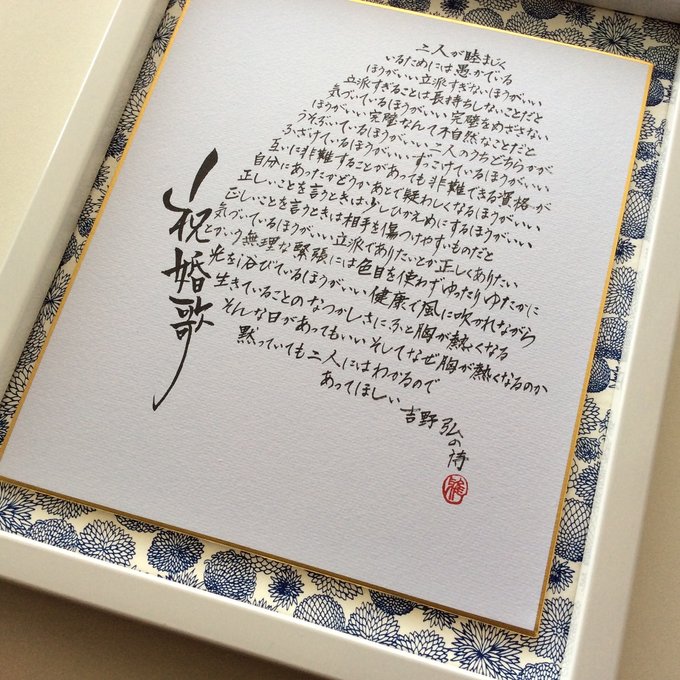 祝婚歌
二人が睦まじく
いるためには愚かでいる
ほうがいい立派すぎないほうがいい
立派すぎることは長持ちしないことだと
気づいているほうがいい 完璧をめざさない
ほうがいい完璧なんて不自然なことだと
うそぶいているほうがいい 二人のうちどちらかが
ふざけているほうがいい ずっこけているほうがいい
互いに非難することがあっても非難できる資格が
自分にあったかどうかあとで疑わしくなるほうがいい
正しいことを言うときは少しひかえめにするほうがいい
正しいことを言うときは相手を傷つけやすいものだと
気づいているほうがいい 立派でありたいとか正しくありたい
とかいう無理な緊張には色目を使わずゆったりゆたかに
光を浴びているほうがいい 健康で風に吹かれながら
生きていることのなつかしさにふと胸が熱くなる
そんな日があってもいい そしてなぜ胸が熱くなるのか
黙っていても二人にはわかるので
あってほしい 吉野弘の詩